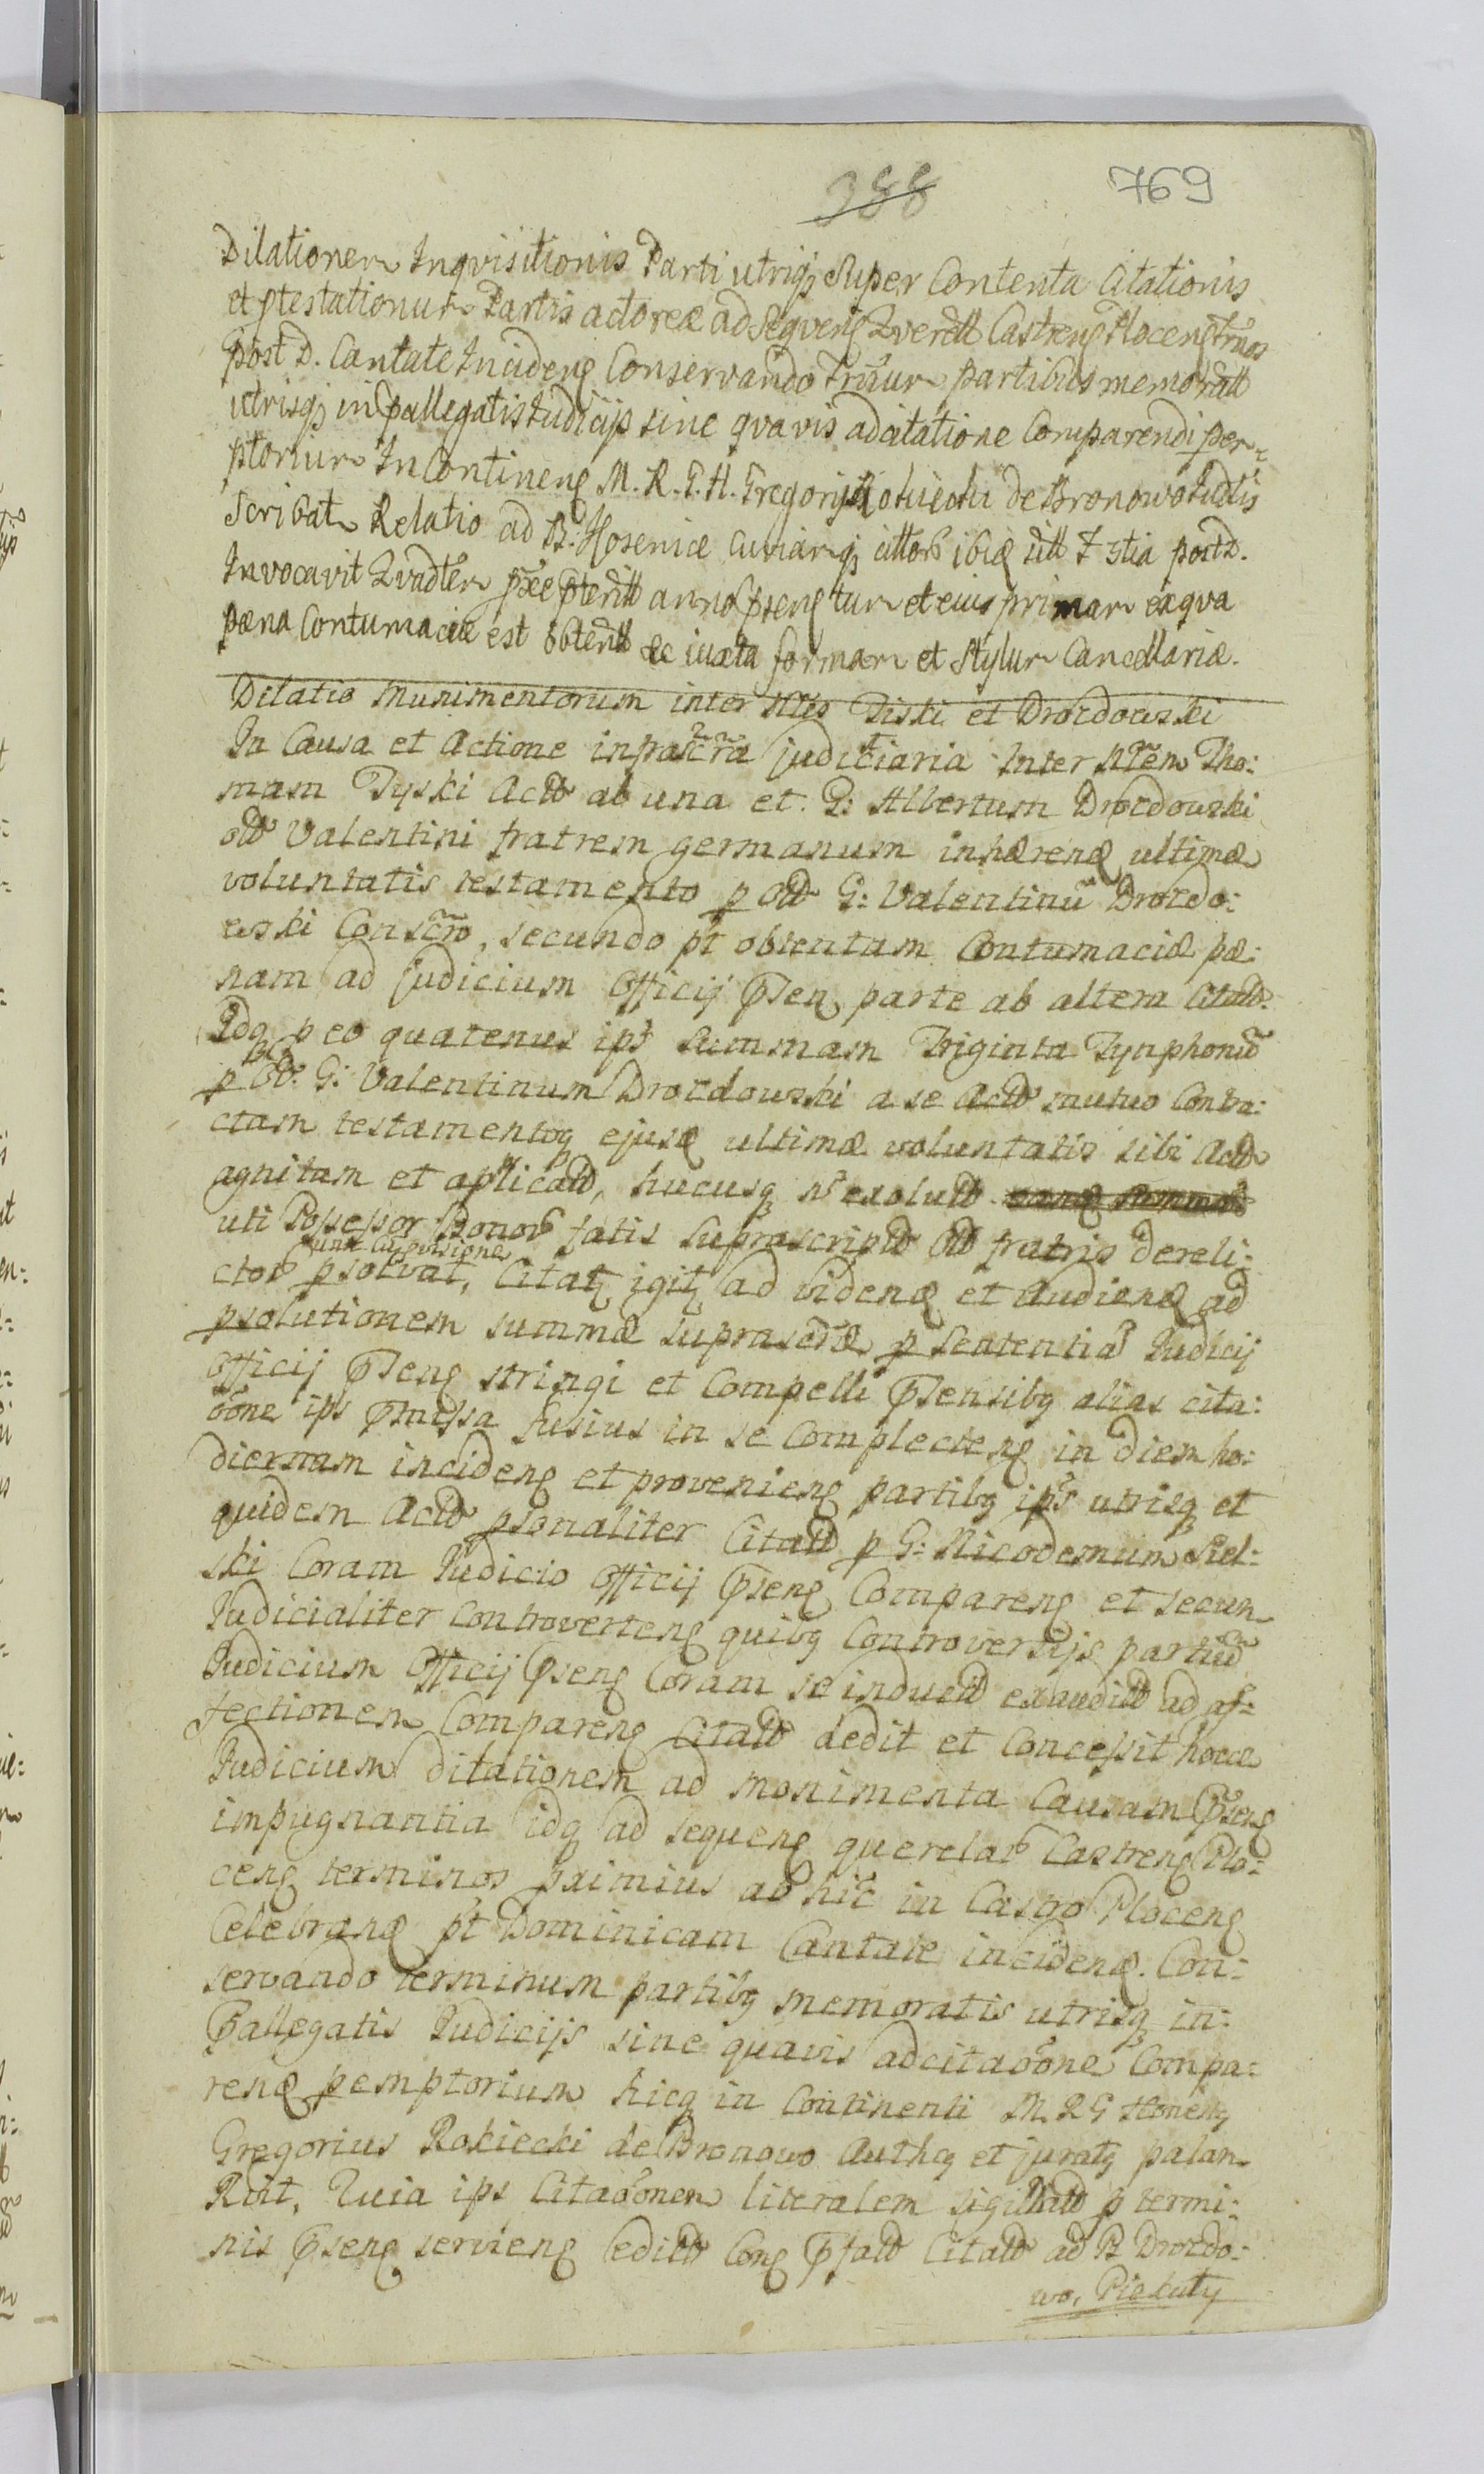 388 769
Dilationem Inqvisitionis Parti utriqz Super Contenta Citationis
et ptestationum Partis actoreæ ad Seqveng Qverell Castreng Plocengtrnos
post D. Cantate Incideng Conservando Trnum partibus memoratt
utrisqz in pallegatis Judicijs sine qvavis adcitatione Comparendi per-
ptorium In Contineng M. R. G. H. Gregorij de Bronowo
Scribat Relatio ad B. Hosenice
Invocavit anno pseng tum et eius primam ex qva
pæna Contumaciæ est obtent &c iuxta formam et Stylum Cancellariæ.
Dilatio Munimentorum inter Nles Tiski et Drozdowski
In Causa et Actione infrascra judiciaria Inter Nlem Tho:
mam Tyski Actt ab una et. G: Albertum Drozdowski
olt Valentini fratrem germanum inhærenz ultimæ
voluntatis testamento p olt G: Valentinu Drozdo:
wski Conscro, secundo pt obtentam Contumaciæ pæ:
nam ad judicium Officij psen parte ab altera Citatt.
Idqz p eo quatenus ipt Summam Triginta Tynphonu
p olt G: Valentinum Drozdowski a se Actt mutuo Contra:
ctam testamentoqz ejusz ultimæ voluntatis sibi Actt
agnitam et aplicatt, hucusqz no exolutt
uti Possessor Bonor fatis Suprascriptt olt fratris dereli:
ctor psolvat, Citatz igitz ad videnz et Audienz ad
psolutionem summæ suprascritæ p sententia Judicij
Officij pseng stringi et Compelli psensibz alias cita:
oone ips pmissa fusius in se Complecteng in diem ho:
diernam incideng et provenieng partibz ips utrisqz et
quidem Actt psonaliter Citatt p G: Nicodemum Siel:
ski Coram Judicio Officij pseng Compareng et secun
Judicialiter Controverteng quibz Controversijs partiu
Judicium Officij pseng Coram se inductt exauditt ad af:
fectionem Compareng Citatt dedit et Concessit hocce
Judicium ditationem ad monimenta Causam pseng
impugnantia idqz ad sequeng querelar Castreng Plo:
ceng terminos primius ad hic in Castro Ploceng
Celebranz pt Dominicam Cantate incidenz. Con:
servando terminum partibz memoratis utrisqz in:
pallegatis Judicijs sine quavis adcitaoone Compa:
renz pemptorium hicqz in Continenti M. R G Honeng
Gregorius Rokiecki de Bronowo Authcz et juratz palam
Rcit, Quia ips Citaoonem literalem sigillatt p termi:
nis pseng servieng editt Cong pfatt Citatt ad B Drozdo:
wo, Piekuty